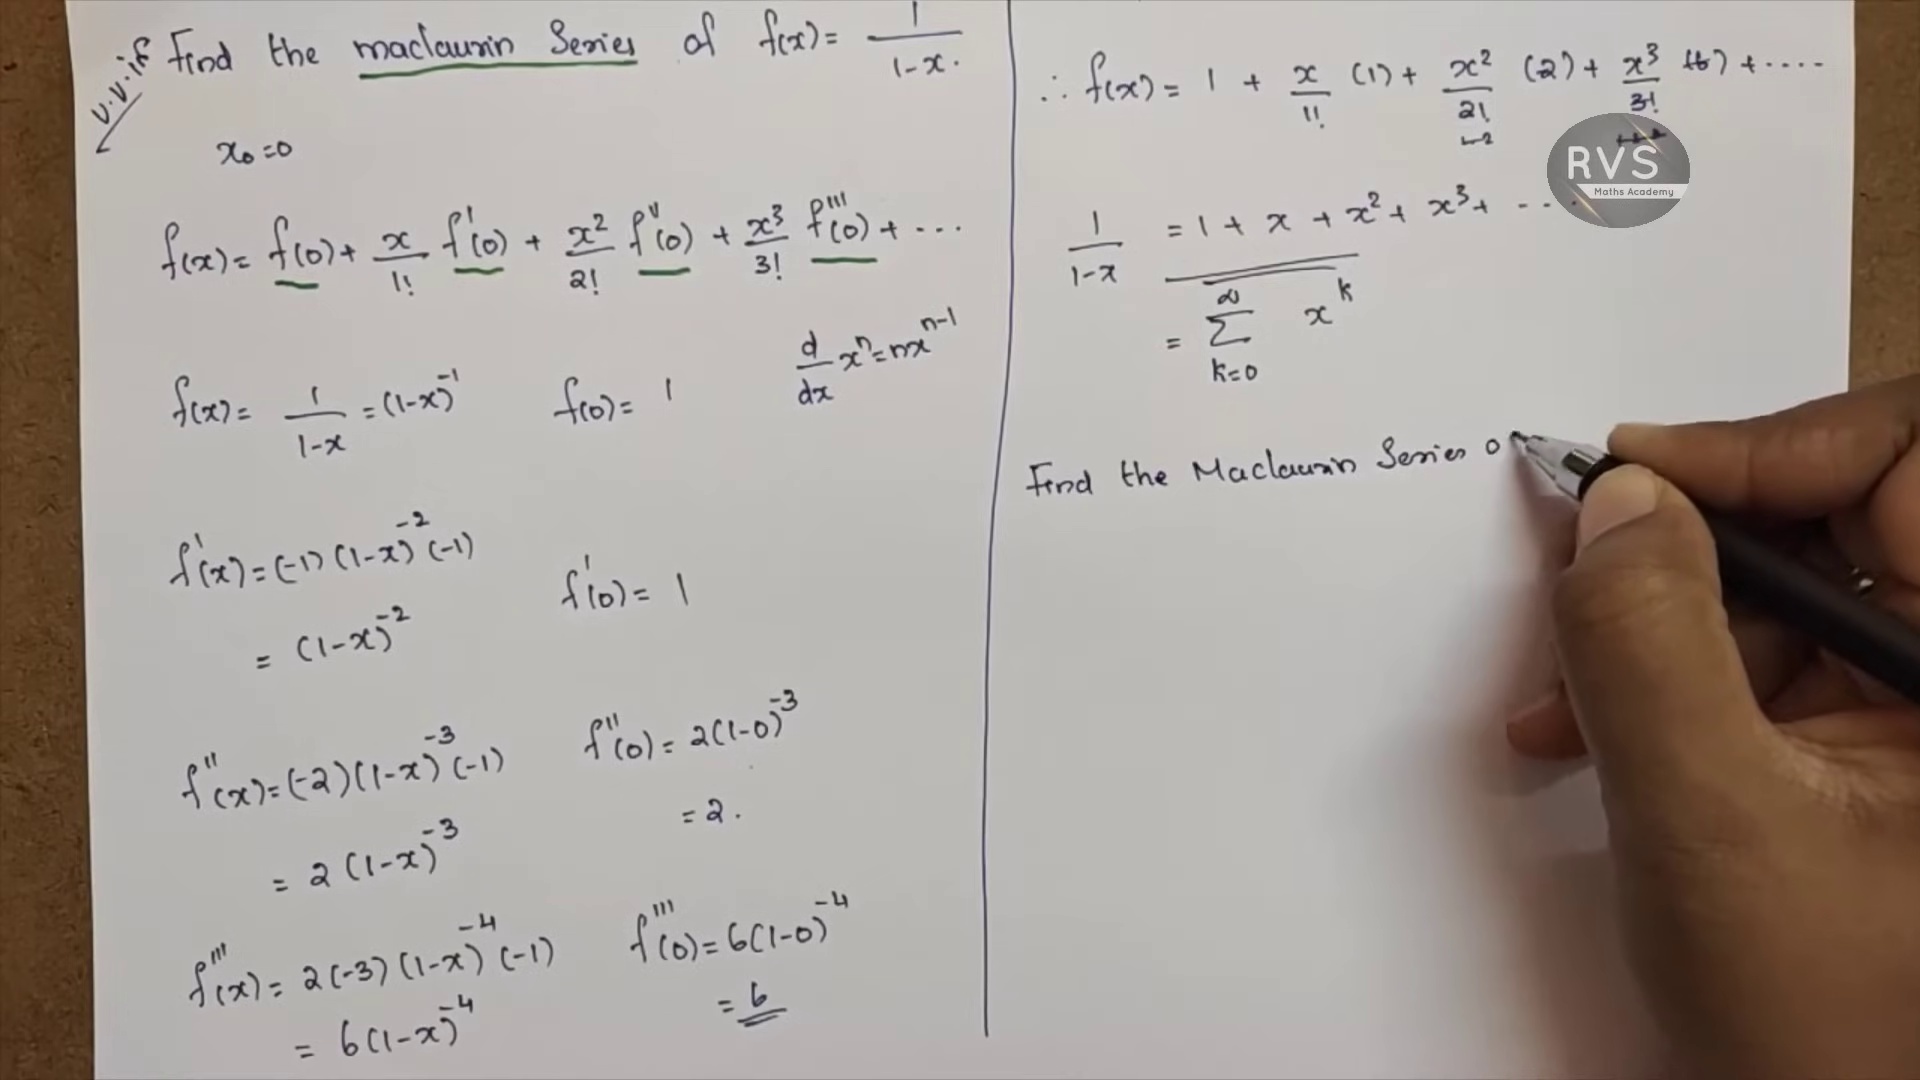 v.v.if
Find the maclaurin Series of f(x) = 1/(1-x).
x₀=0
f(x) = f(0) + x/1! f'(0) + x²/2! f''(0) + x³/3! f'''(0) + ...
f(x) = 1/(1-x) = (1-x)⁻¹ f(0) = 1 d/dx xⁿ = nxⁿ⁻¹
f'(x) = (-1)(1-x)⁻²(-1) f'(0) = 1
= (1-x)⁻²
f''(x) = (-2)(1-x)⁻³(-1) f''(0) = 2(1-0)⁻³
= 2(1-x)⁻³ = 2.
f'''(x) = 2(-3)(1-x)⁻⁴(-1) f'''(0) = 6(1-0)⁻⁴
= 6(1-x)⁻⁴ = 6
∴ f(x) = 1 + x/1! (1) + x²/2! (2) + x³/3! (6) + ....
RVS
Maths Academy
1/(1-x) = 1 + x + x² + x³ + ....
= ∞ Σ k=0 xᵏ
Find the Maclaurin Series o